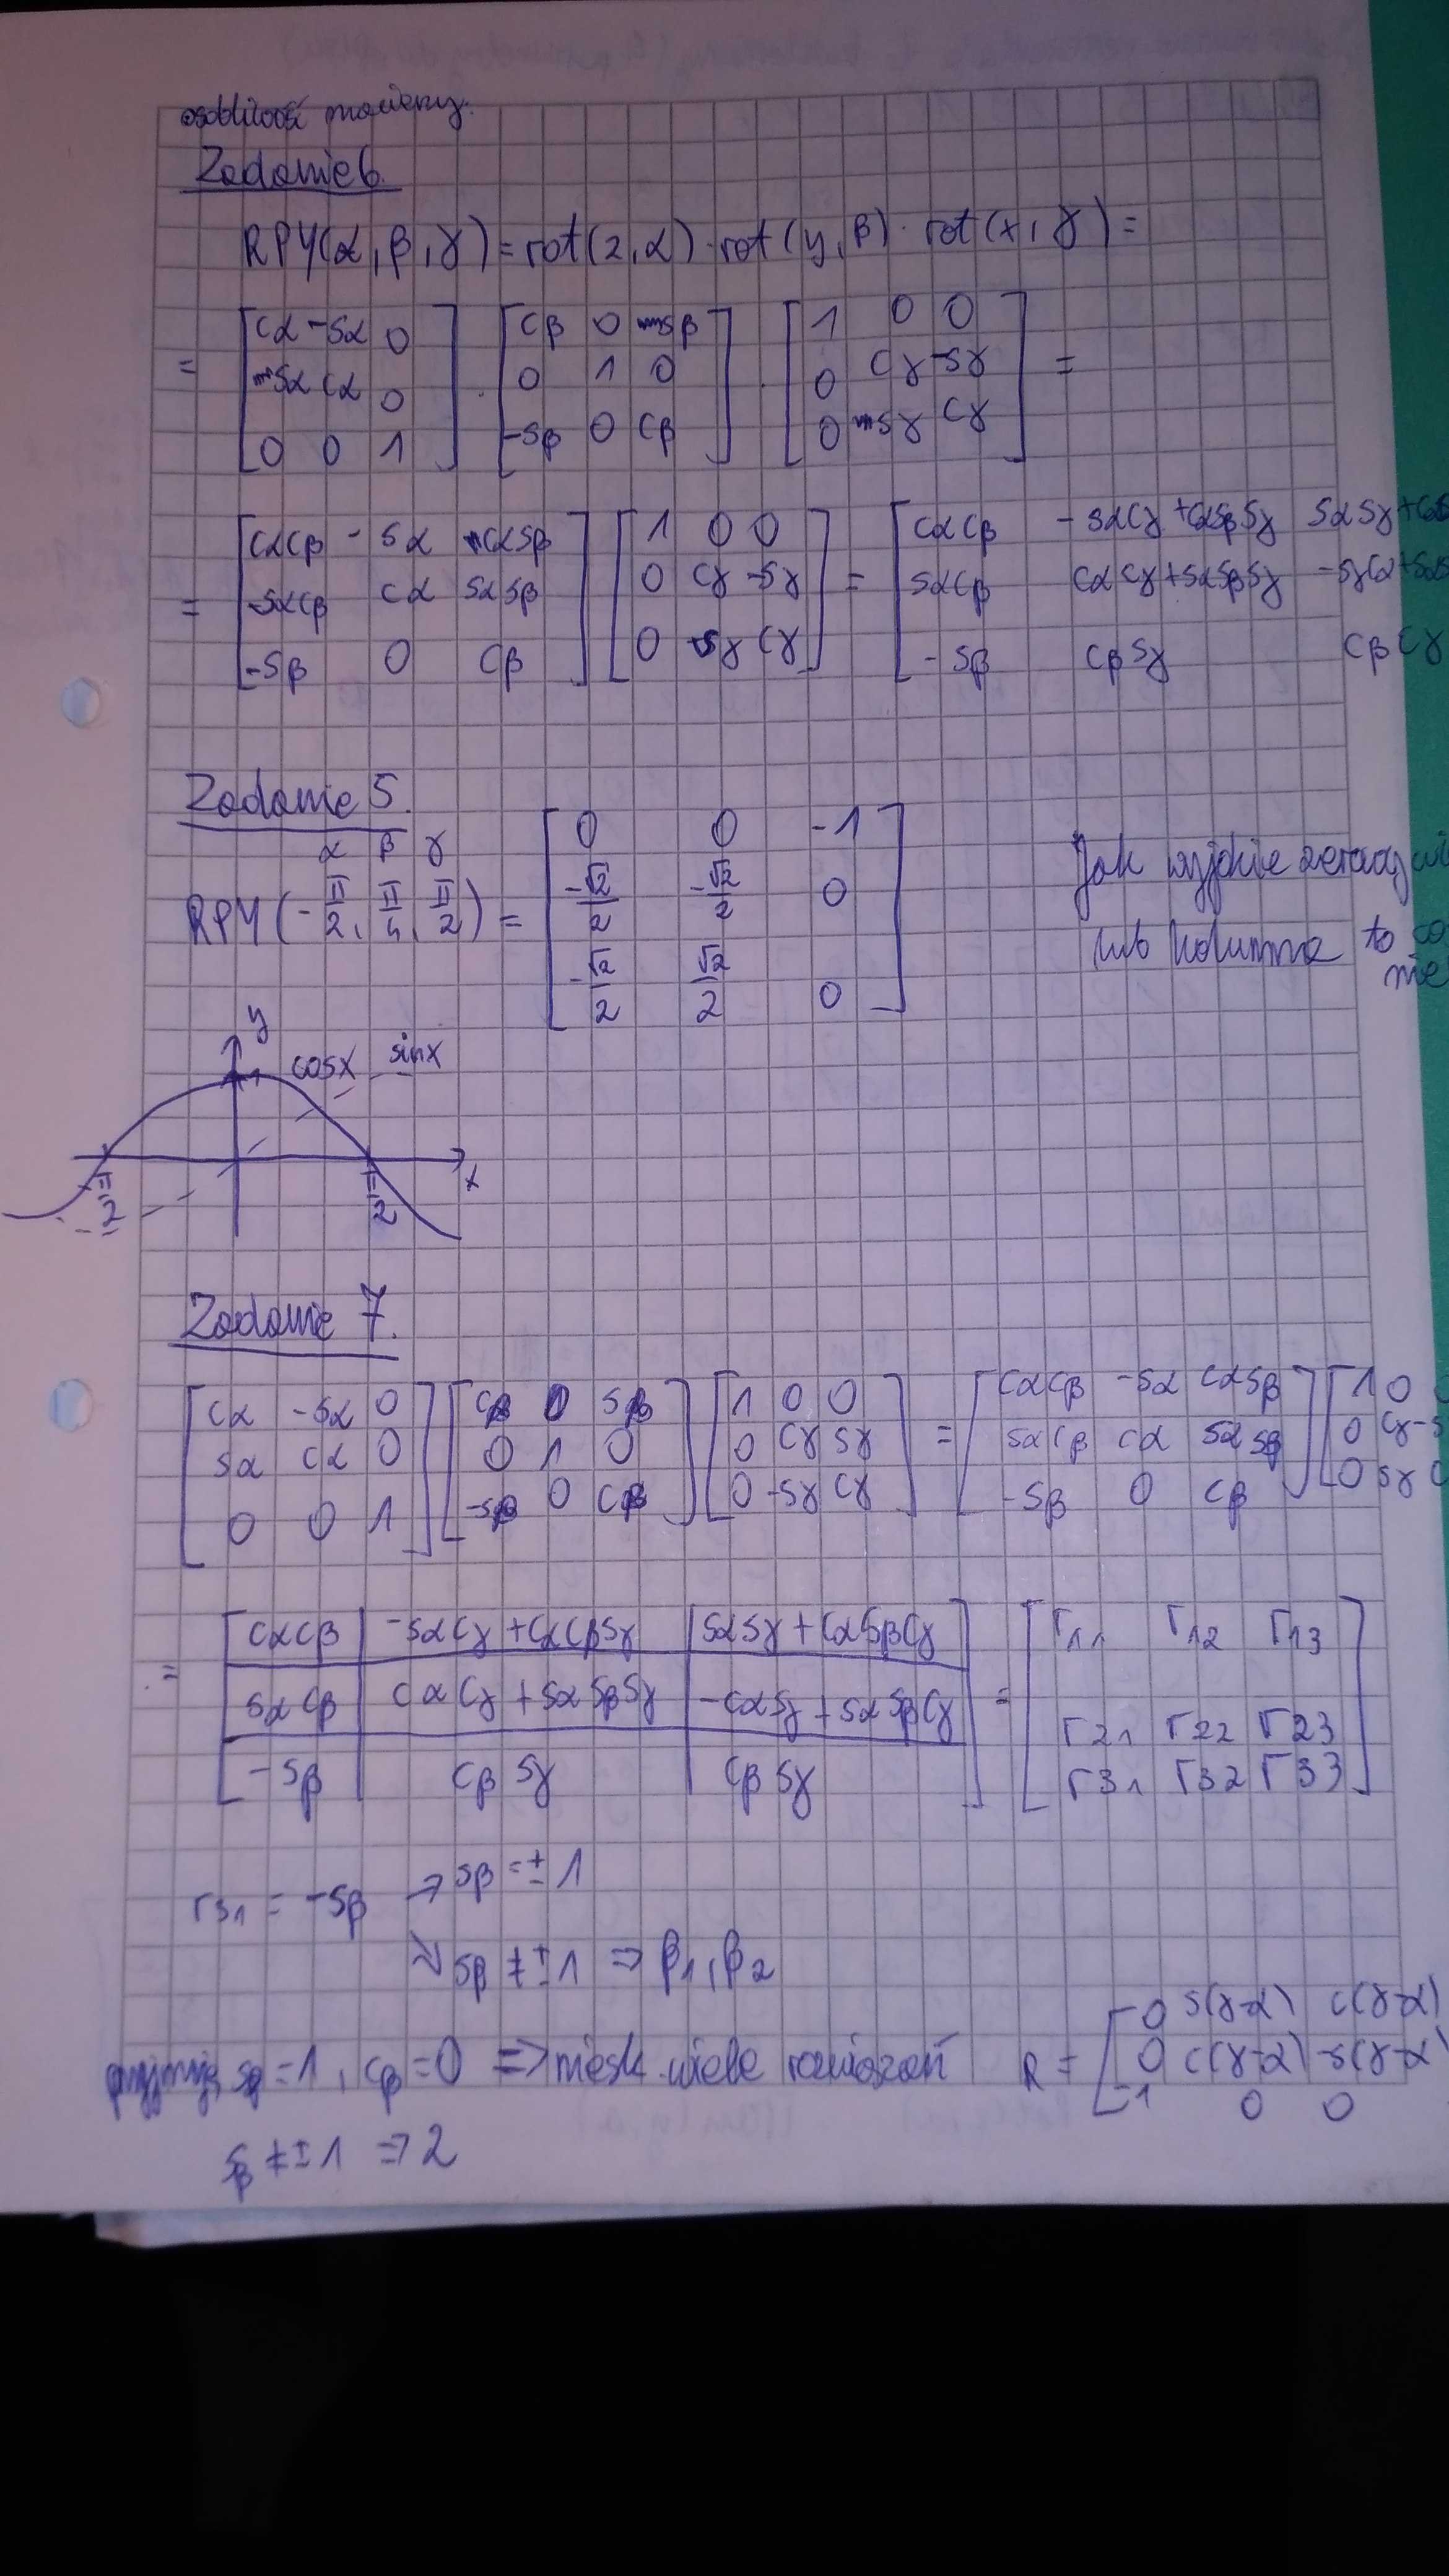 osobliwość macierzy.
Zadanie 6.
RPY(α, β, γ) = rot(z, α) · rot(y, β) · rot(x, γ) =
= [cα -sα 0; sα cα 0; 0 0 1] · [cβ 0 sβ; 0 1 0; -sβ 0 cβ] · [1 0 0; 0 cγ -sγ; 0 sγ cγ] =
= [cαcβ -sα cαsβ; sαcβ cα sαsβ; -sβ 0 cβ] [1 0 0; 0 cγ -sγ; 0 sγ cγ] = [cαcβ -sαcγ+cαsβsγ sαsγ+; sαcβ cαcγ+sαsβsγ -sγcα+; -sβ cβsγ cβcγ]
Zadanie 5.
α β γ
RPY(-π/2, π/4, π/2) = [0 0 -1; -√2/2 -√2/2 0; -√2/2 √2/2 0]
Jak wyjdzie
lub kolumna to
nie
y
1
cosx sinx
x
-π/2 π/2
Zadanie 7.
[cα -sα 0; sα cα 0; 0 0 1] [cβ 0 sβ; 0 1 0; -sβ 0 cβ] [1 0 0; 0 cγ sγ; 0 -sγ cγ] = [cαcβ -sα cαsβ; sαcβ cα sαsβ; -sβ 0 cβ] [1 0; 0 cγ -s; 0 sγ
= [cαcβ -sαcγ+cαcβsγ sαsγ+cαsβcγ; sαcβ cαcγ+sαsβsγ -cαsγ+sαsβcγ; -sβ cβsγ cβsγ] = [r11 r12 r13; r21 r22 r23; r31 r32 r33]
r31 = -sβ → sβ = ±1
↘ sβ ≠ ±1 ⇒ β1, β2
przyjmuję sβ = 1, cβ = 0 ⇒ niesk. wiele rozwiązań R = [0 s(γ-α) c(γ-α); 0 c(γ-α) -s(γ-α); -1 0 0
sβ ≠ ±1 ⇒ 2